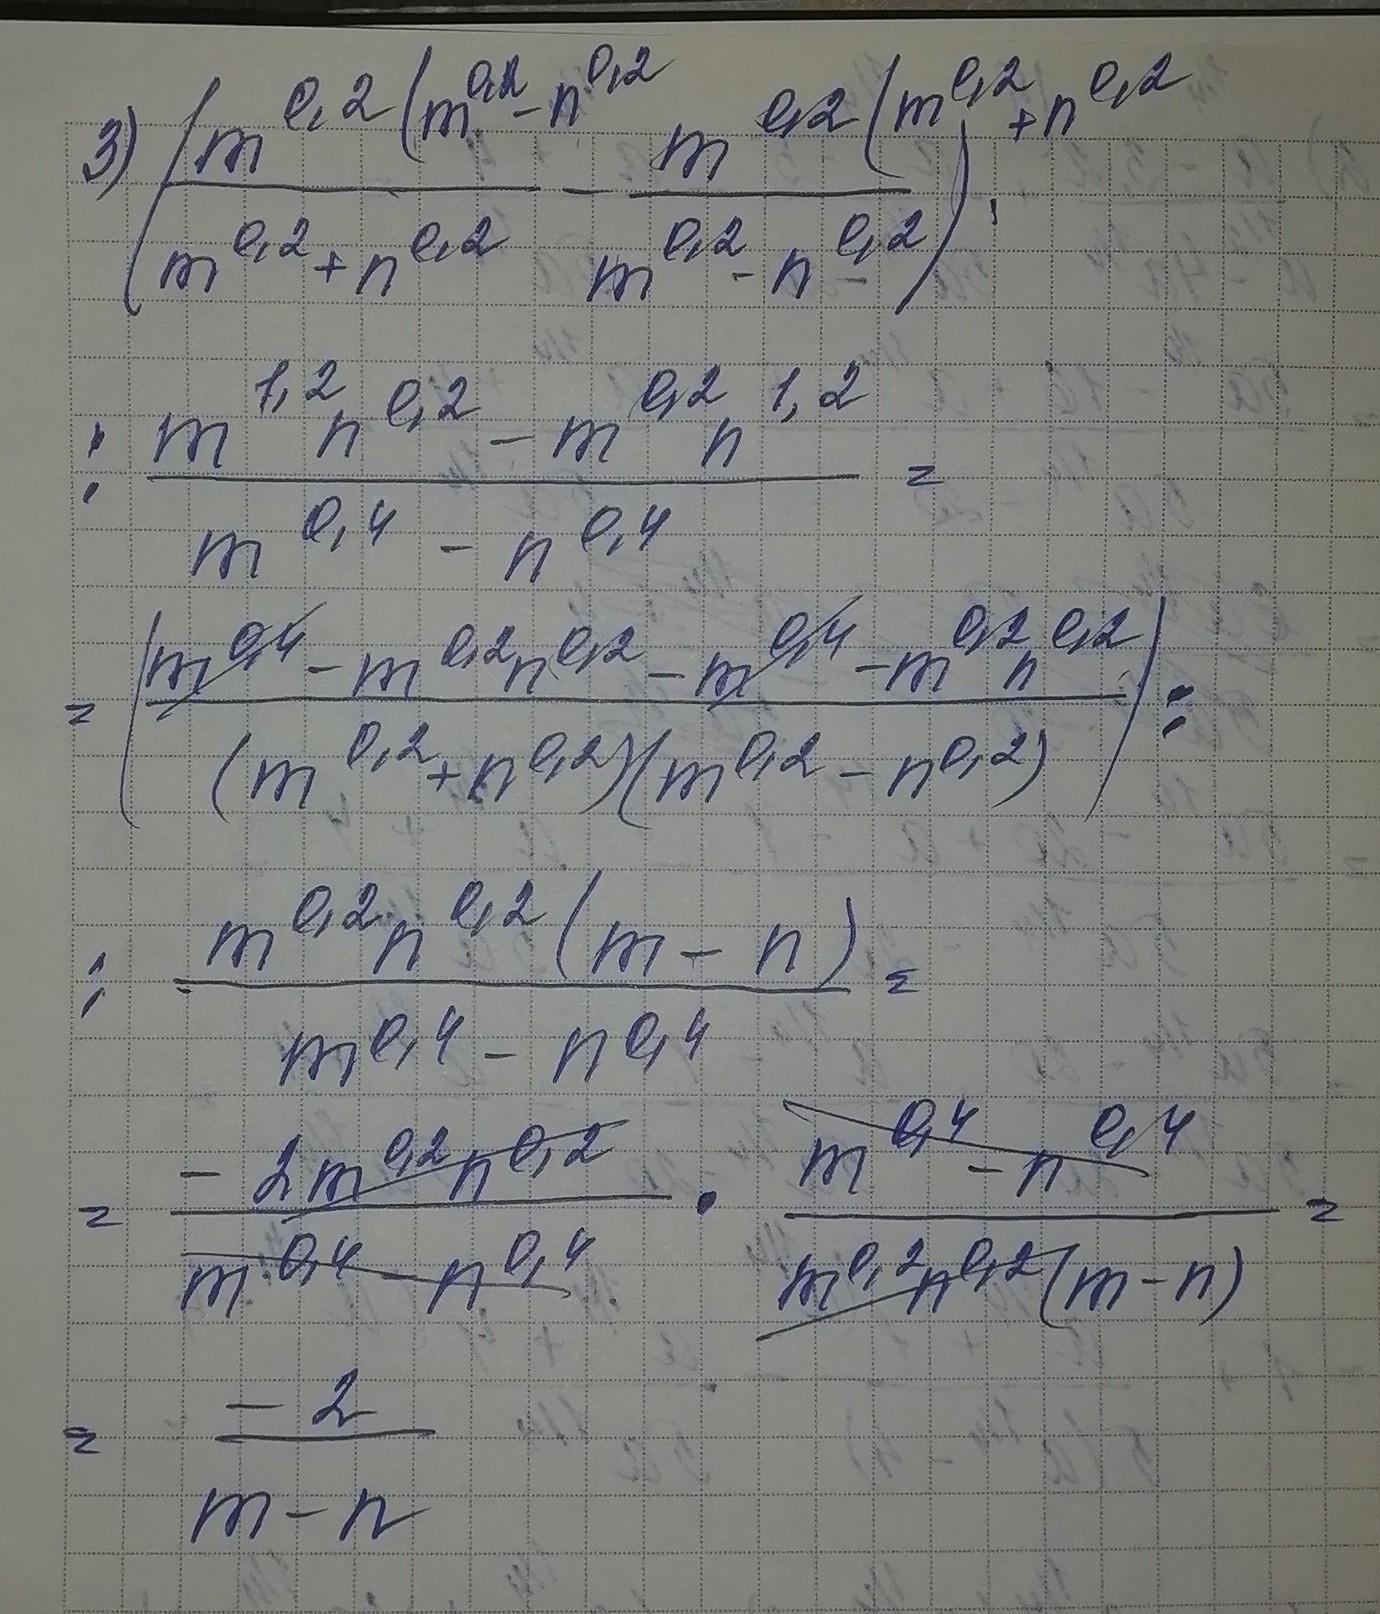 3) ( m^0,2 (m^0,2 - n^0,2 / m^0,2 + n^0,2 - m^0,2 (m^0,2 + n^0,2 / m^0,2 - n^0,2 ) :
: m^1,2 n^0,2 - m^0,2 n^1,2 / m^0,4 - n^0,4 =
= ( m^0,4 - m^0,2 n^0,2 - m^0,4 - m^0,2 n^0,2 / (m^0,2 + n^0,2)(m^0,2 - n^0,2) ) :
: m^0,2 n^0,2 (m - n) / m^0,4 - n^0,4 =
= - 2 m^0,2 n^0,2 / m^0,4 - n^0,4 · m^0,4 - n^0,4 / m^0,2 n^0,2 (m - n) =
= - 2 / m - n